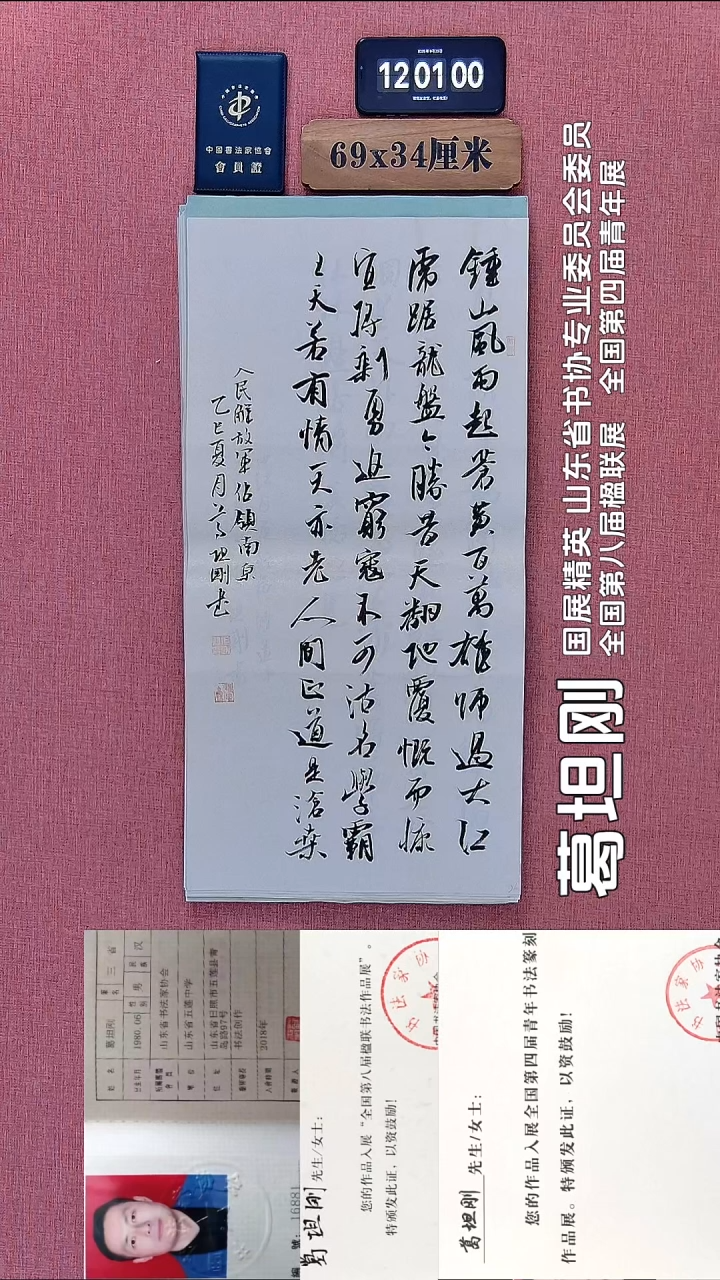 中国书法家协会
中國書法家協會
會員證
12 01 00
69x34厘米
鍾山風雨起蒼黃百萬雄師過大江
虎踞龍盤今勝昔天翻地覆慨而慷
宜將剩勇追窮寇不可沽名學霸
王天若有情天亦老人間正道是滄桑
人民解放軍佔領南京
乙巳夏月葛坦剛書
国展精英 山东省书协专业委员会委员
全国第八届楹联展 全国第四届青年展
葛坦刚
姓名 葛坦刚
1980.06 性别 男 民族 汉
山东省书法家协会
山东省五莲中学
山东省日照市五莲县青
岛路97号
书法创作
2018年
編號：16881
葛坦刚 先生/女士：
您的作品入展“全国第八届楹联书法作品展”。
特颁发此证，以资鼓励！
葛坦刚 先生/女士：
您的作品入展全国第四届青年书法篆刻
作品展。特颁发此证，以资鼓励！